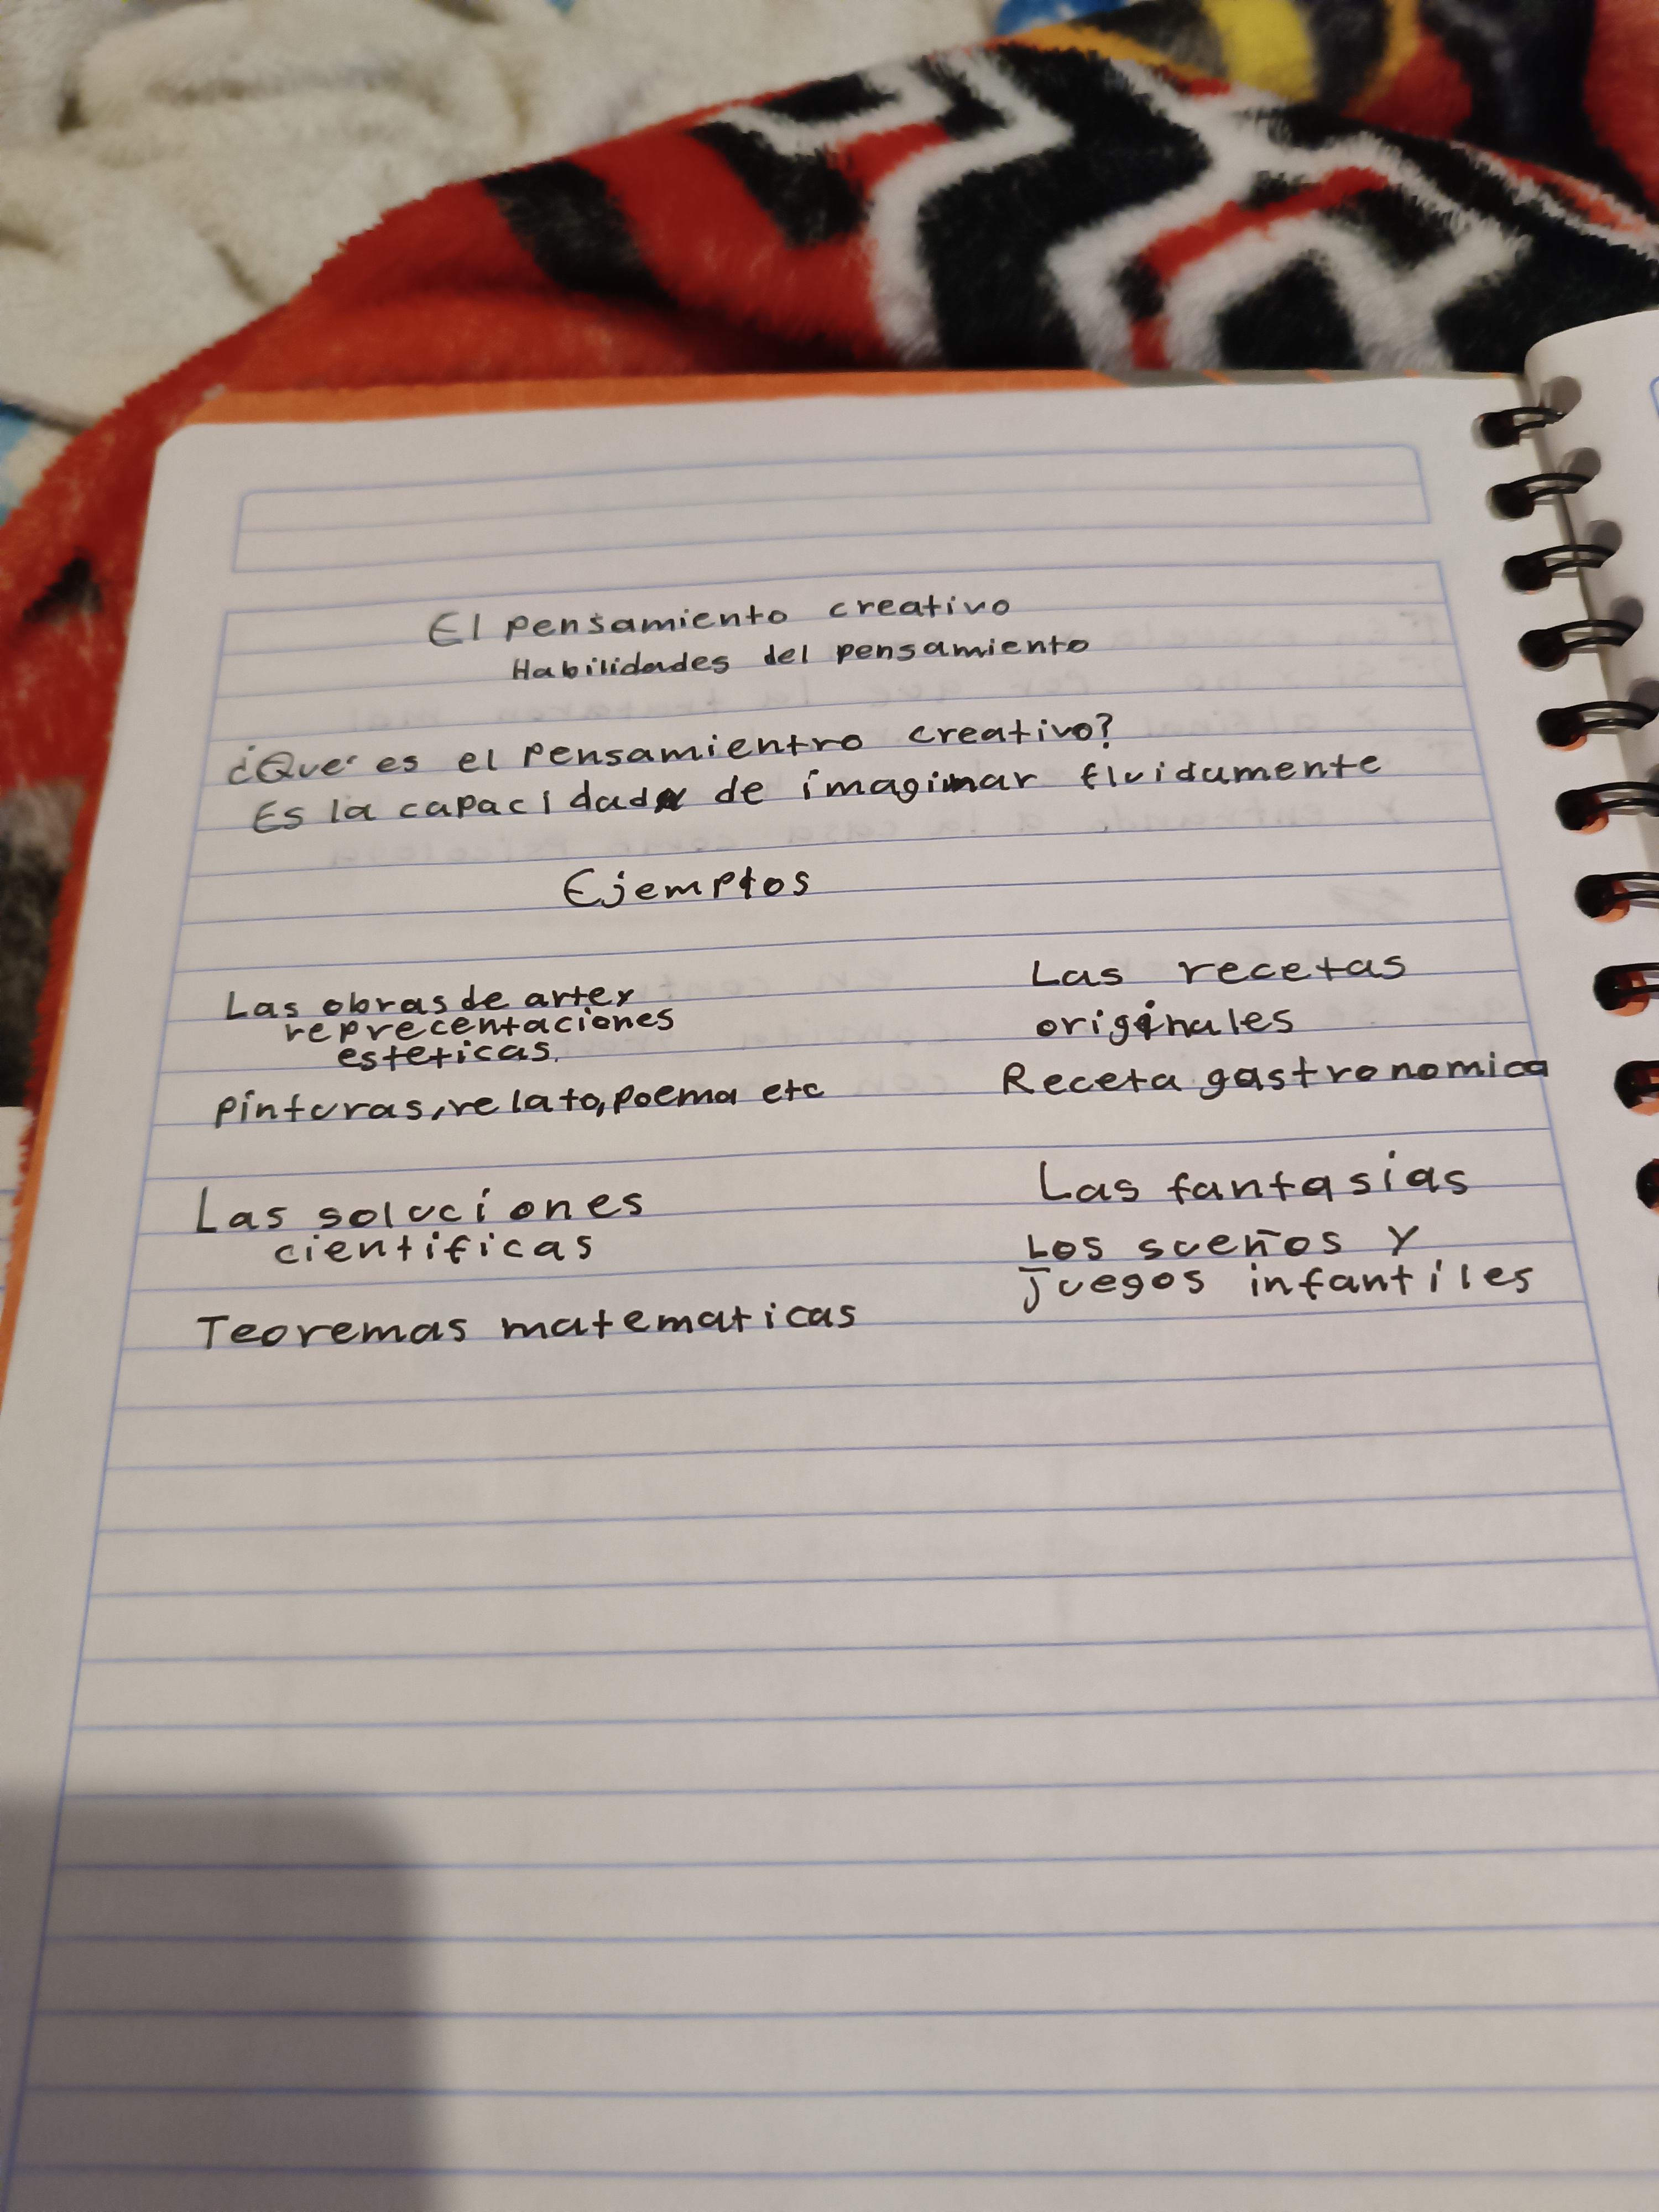 El pensamiento creativo
Habilidades del pensamiento
¿Que es el pensamientro creativo?
Es la capacidad de imaginar fluidamente
Ejemplos
Las obras de arte y
reprecentaciones
esteticas.
pinturas, relato, poema etc
Las recetas
originales
Receta gastronomica
Las soluciones
cientificas
Teoremas matematicas
Las fantasias
Los sueños y
juegos infantiles